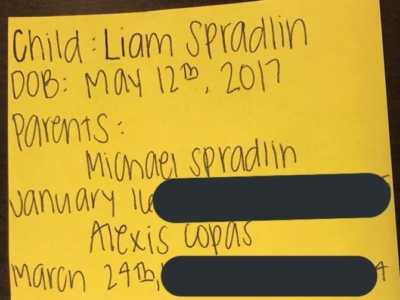 Child: Liam Spradlin
DOB: May 12th, 2017
Parents:
Michael Spradlin
January 16
Alexis Copas
March 24th,